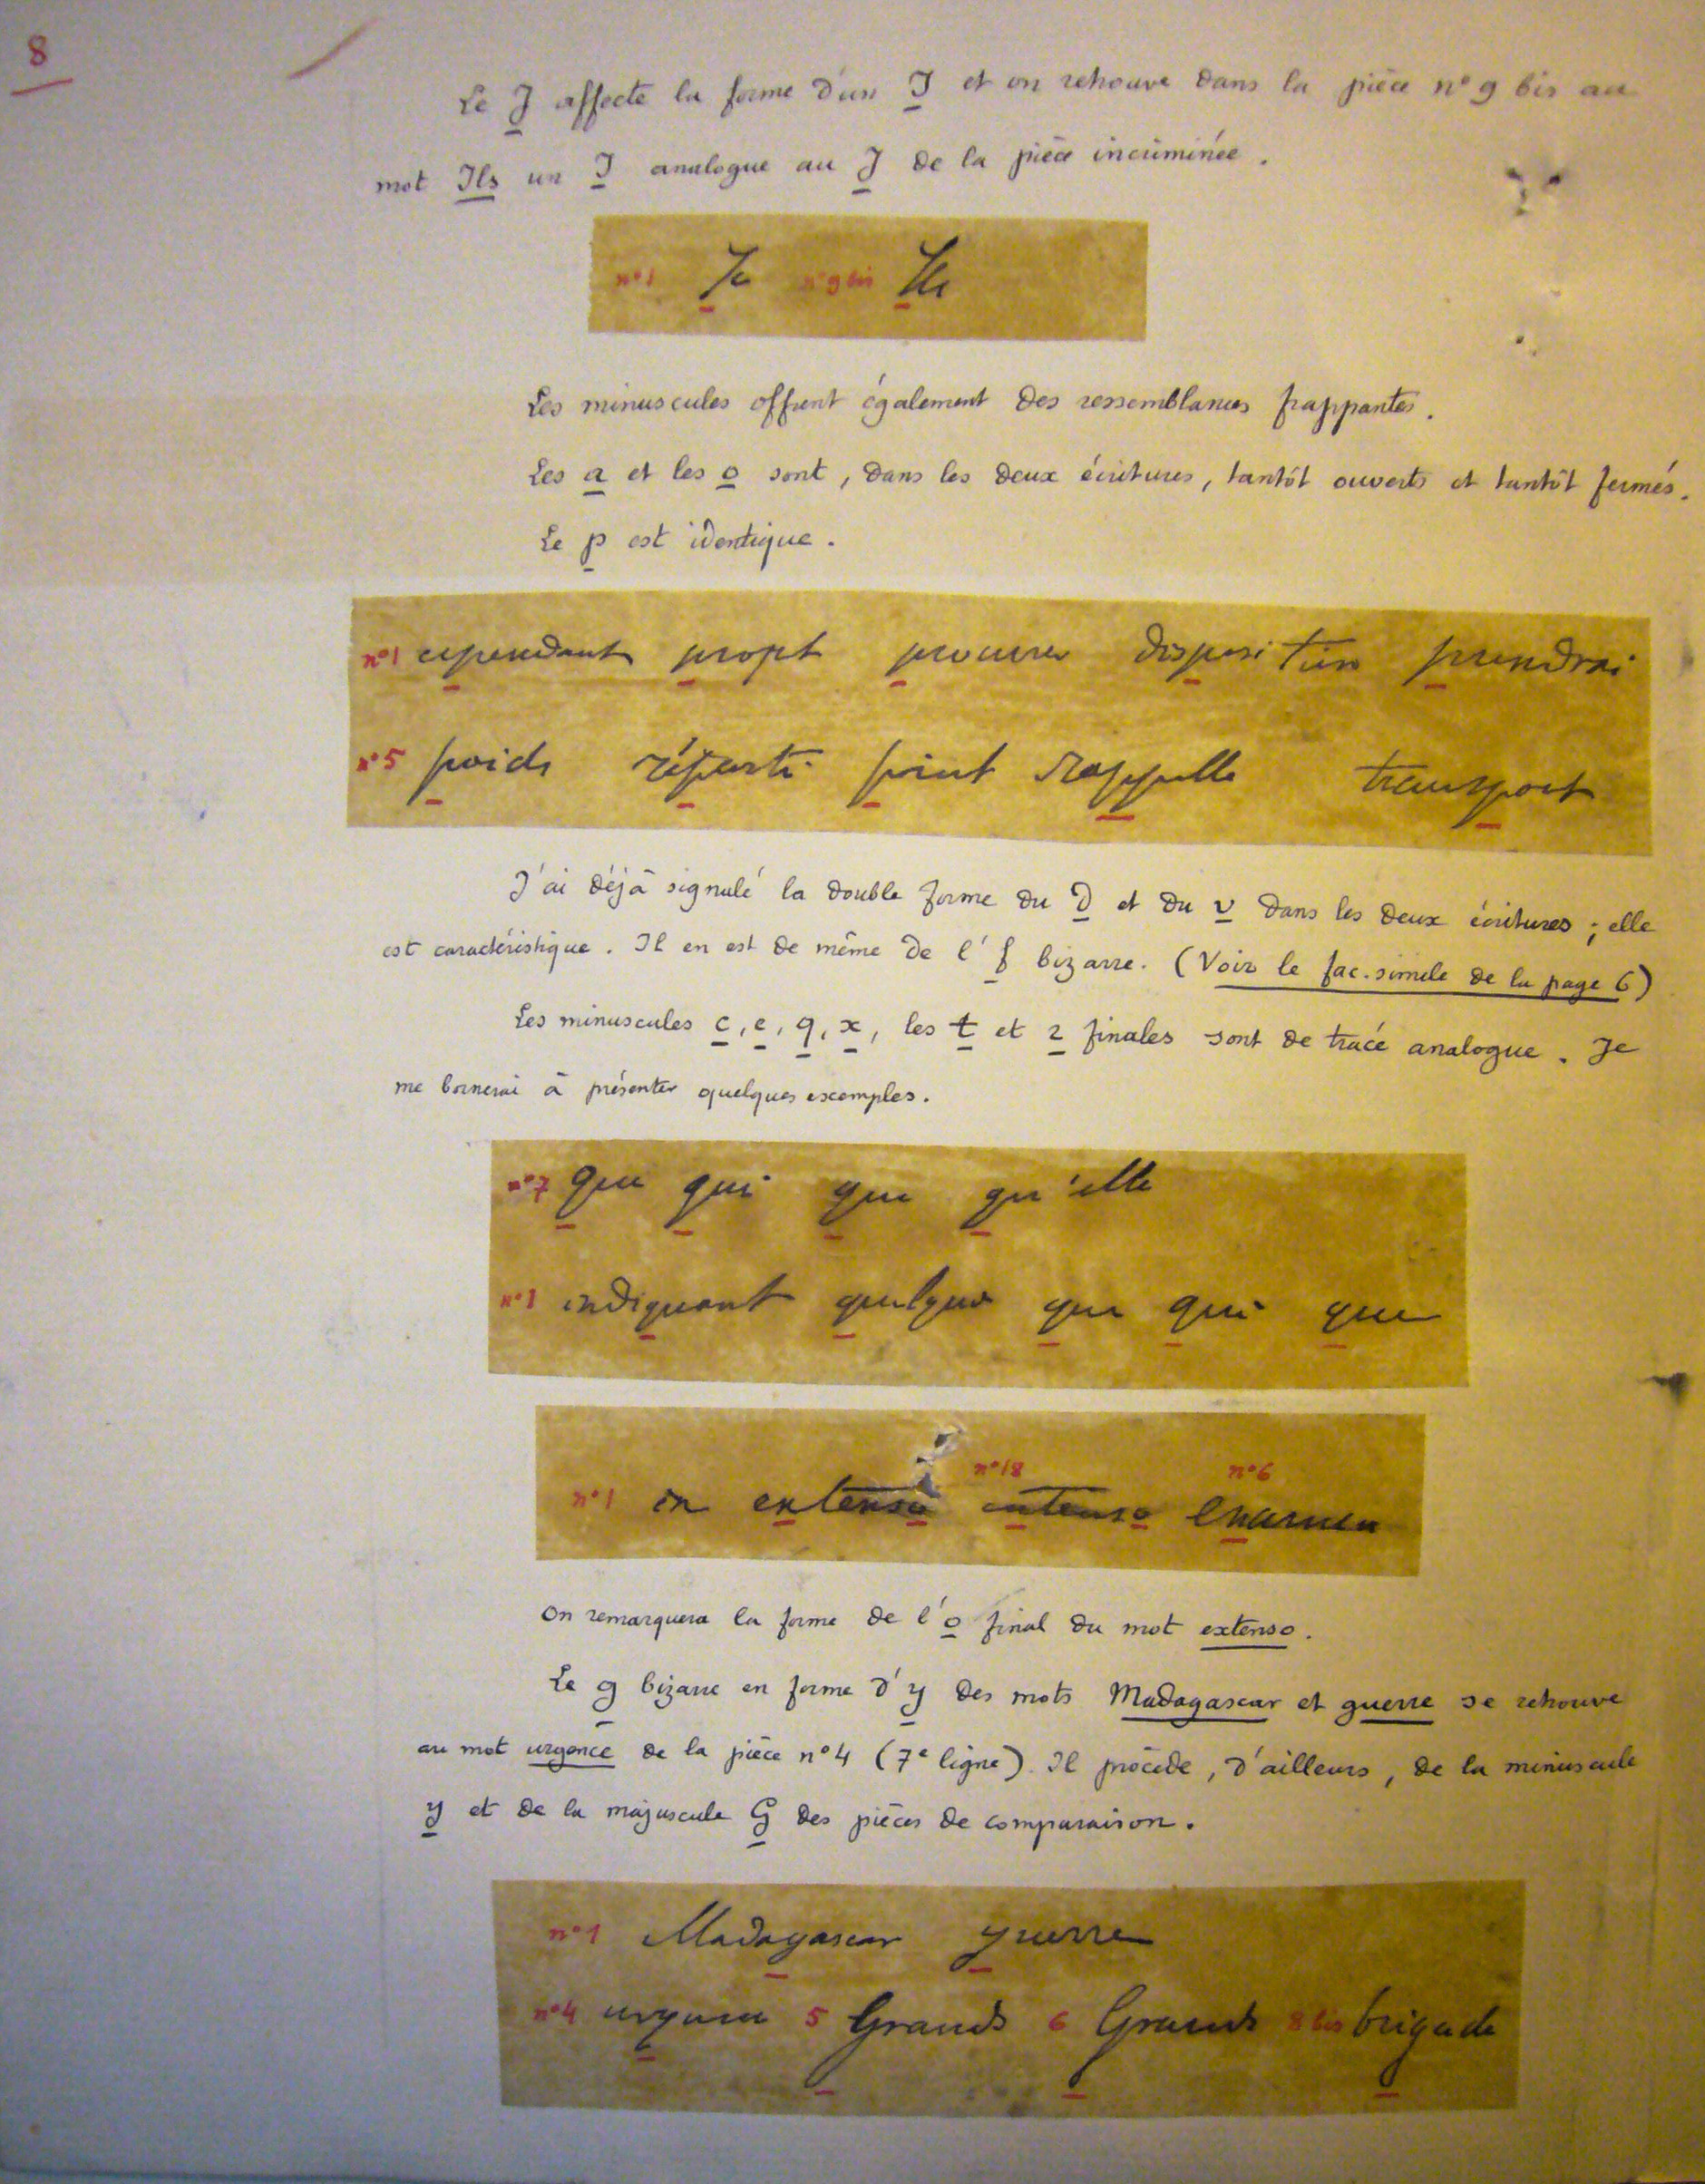 8
Le J affecte la forme d'un I et on retrouve dans la pièce n° 9 bis au
mot Ils un I analogue au J de la pièce incriminée.
n°1 Je n°9 bis Ils
Les minuscules offrent également des ressemblances frappantes.
Les a et les o sont, dans les deux écritures, tantôt ouverts et tantôt fermés.
Le p est identique.
n°1 cependant propt procurer disposition prendrai
n°5 poids réparti point rappelle transport
J'ai déjà signalé la double forme du d et du v dans les deux écritures; elle
est caractéristique. Il en est de même de l'f bizarre. (Voir le fac-simile de la page 6)
Les minuscules c, e, q, x, les t et z finales sont de tracé analogue. Je
me bornerai à présenter quelques exemples.
n°7 que qui que qu'elle
n°1 indiquant quelque que qui que
n°18 n°6
n°1 in extenso extenso examen
On remarquera la forme de l'o final du mot extenso.
Le g bizarre en forme d'y des mots Madagascar et guerre se retrouve
au mot urgence de la pièce n°4 (7e ligne). Il procède, d'ailleurs, de la minuscule
y et de la majuscule G des pièces de comparaison.
n°1 Madagascar guerre
n°4 urgence 5 Grands 6 Grands 8 bis brigade